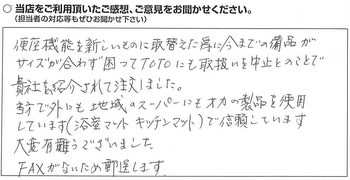 ○ 当店をご利用頂いたご感想、ご意見をお聞かせください。
（担当者の対応等もぜひお聞かせ下さい）
便座機能を新しいものに取替えた際に今までの備品が
サイズが合わず困ってTOTOにも取扱いを中止とのことで
貴社を紹介されて注文しました。
当方で外にも地域のスーパーにもオカの製品を使用
しています（浴室マット キッチンマット）で信頼しています
大変有難うございました。
FAXがないため郵送します。